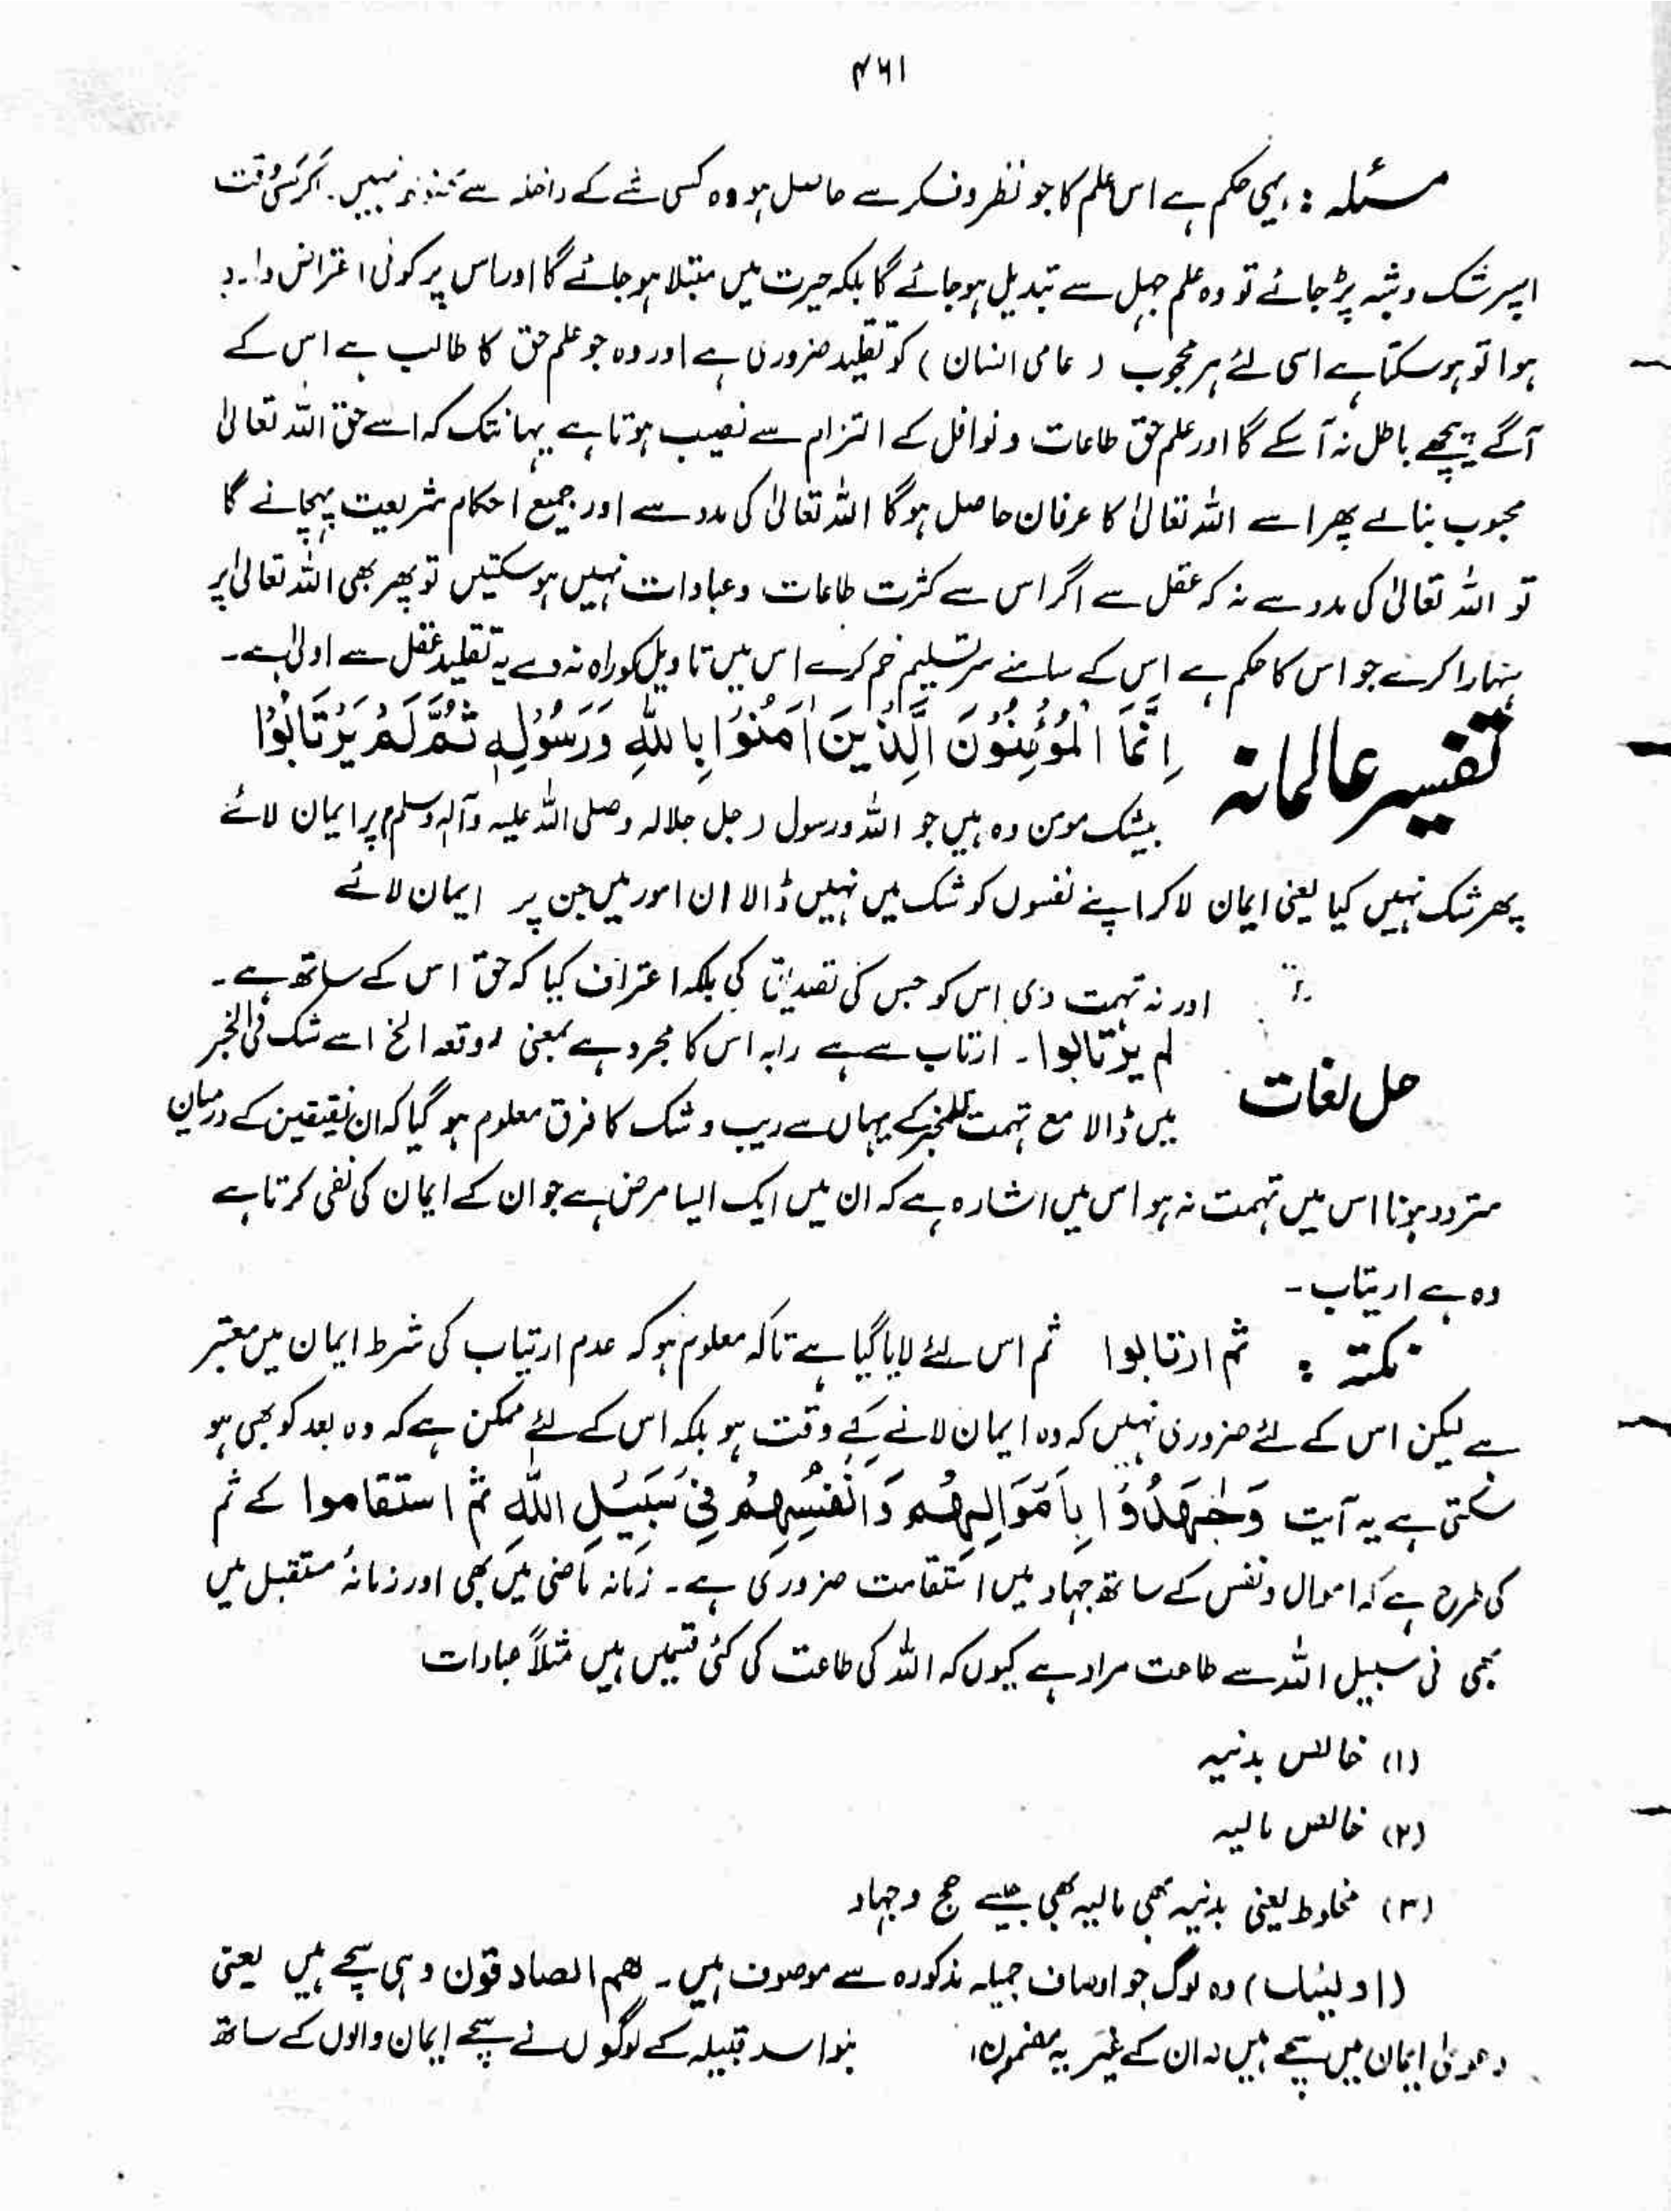 ۴۶۱
مسئلہ : یہی حکم ہے اس علم کا جو نظر و فکر سے حاصل ہو وہ کسی شے کے داخلہ سے محفوظ نہیں۔ اگر کسی وقت
اسپر شک و شبہ پڑ جائے تو وہ علم جہل سے تبدیل ہو جائے گا بلکہ حیرت میں مبتلا ہو جائے گا اور اس پر کوئی اعتراض وارد
ہوا تو ہو سکتا ہے اسی لئے ہر محجوب ( عامی انسان ) کو تقلید ضروری ہے اور وہ جو علم حق کا طالب ہے اس کے
آگے پیچھے باطل نہ آ سکے گا اور علم حق طاعات و نوافل کے التزام سے نصیب ہوتا ہے یہانتک کہ اسے حق اللہ تعالیٰ
محبوب بنالے پھر اسے اللہ تعالیٰ کا عرفان حاصل ہوگا اللہ تعالیٰ کی مدد سے اور جمیع احکام شریعت پہچانے گا
تو اللہ تعالیٰ کی مدد سے نہ کہ عقل سے اگر اس سے کثرت طاعات و عبادات نہیں ہو سکتیں تو پھر بھی اللہ تعالیٰ پر
سہارا کرے جو اس کا حکم ہے اس کے سامنے سر تسلیم خم کرے اس میں تاویل کو راہ نہ دے یہ تقلید عقل سے اولیٰ ہے۔
تفسیر عالمانہ اِنَّمَا الْمُؤْمِنُوْنَ الَّذِيْنَ اٰمَنُوْا بِاللّٰهِ وَرَسُوْلِهٖ ثُمَّ لَمْ يَرْتَابُوْا
بیشک مومن وہ ہیں جو اللہ و رسول ( جل جلالہ و صلی اللہ علیہ وآلہ وسلم ) پر ایمان لائے
پھر شک نہیں کیا یعنی ایمان لا کر اپنے نفسوں کو شک میں نہیں ڈالا ان امور میں جن پر ایمان لائے
اور نہ تہمت دی اس کو جس کی تصدیق کی بلکہ اعتراف کیا کہ حق اس کے ساتھ ہے۔
حل لغات لم یرتابوا۔ ارتاب سے ہے رابہ اس کا مجرد ہے بمعنی اوقعہ الخ اسے شک فی الخبر
میں ڈالا مع تہمت للمخبر کے یہاں سے ریب و شک کا فرق معلوم ہو گیا کہ ان نقیضین کے درمیان
متردد ہونا اس میں تہمت نہ ہو اس میں اشارہ ہے کہ ان میں ایک ایسا مرض ہے جو ان کے ایمان کی نفی کرتا ہے
وہ ہے ارتیاب۔
نکتہ : ثم ارتابوا ثم اس لئے لایا گیا ہے تاکہ معلوم ہو کہ عدم ارتیاب کی شرط ایمان میں معتبر
ہے لیکن اس کے لئے ضروری نہیں کہ وہ ایمان لانے کے وقت ہو بلکہ اس کے لئے ممکن ہے کہ وہ بعد کو بھی ہو
سکتی ہے یہ آیت وَجٰهَدُوْا بِاَمْوَالِهِمْ وَاَنْفُسِهِمْ فِيْ سَبِيْلِ اللّٰهِ ثم استقاموا کے ثم
کی طرح ہے کہ اموال و نفس کے ساتھ جہاد میں استقامت ضروری ہے۔ زمانہ ماضی میں بھی اور زمانۂ مستقبل میں
بھی فی سبیل اللہ سے طاعت مراد ہے کیوں کہ اللہ کی طاعت کی کئی قسمیں ہیں مثلاً عبادات
(۱) خالص بدنیہ
(۲) خالص مالیہ
(۳) مخلوط یعنی بدنیہ بھی مالیہ بھی جیسے حج و جہاد
(اولئیک) وہ لوگ جو اوصاف جمیلہ مذکورہ سے موصوف ہیں۔ ھم الصادقون وہی سچے ہیں یعنی
دعویٰ ایمان میں سچے ہیں نہ ان کے غیر یہ مضمون بنو اسد قبیلہ کے لوگوں نے سچے ایمان والوں کے ساتھ